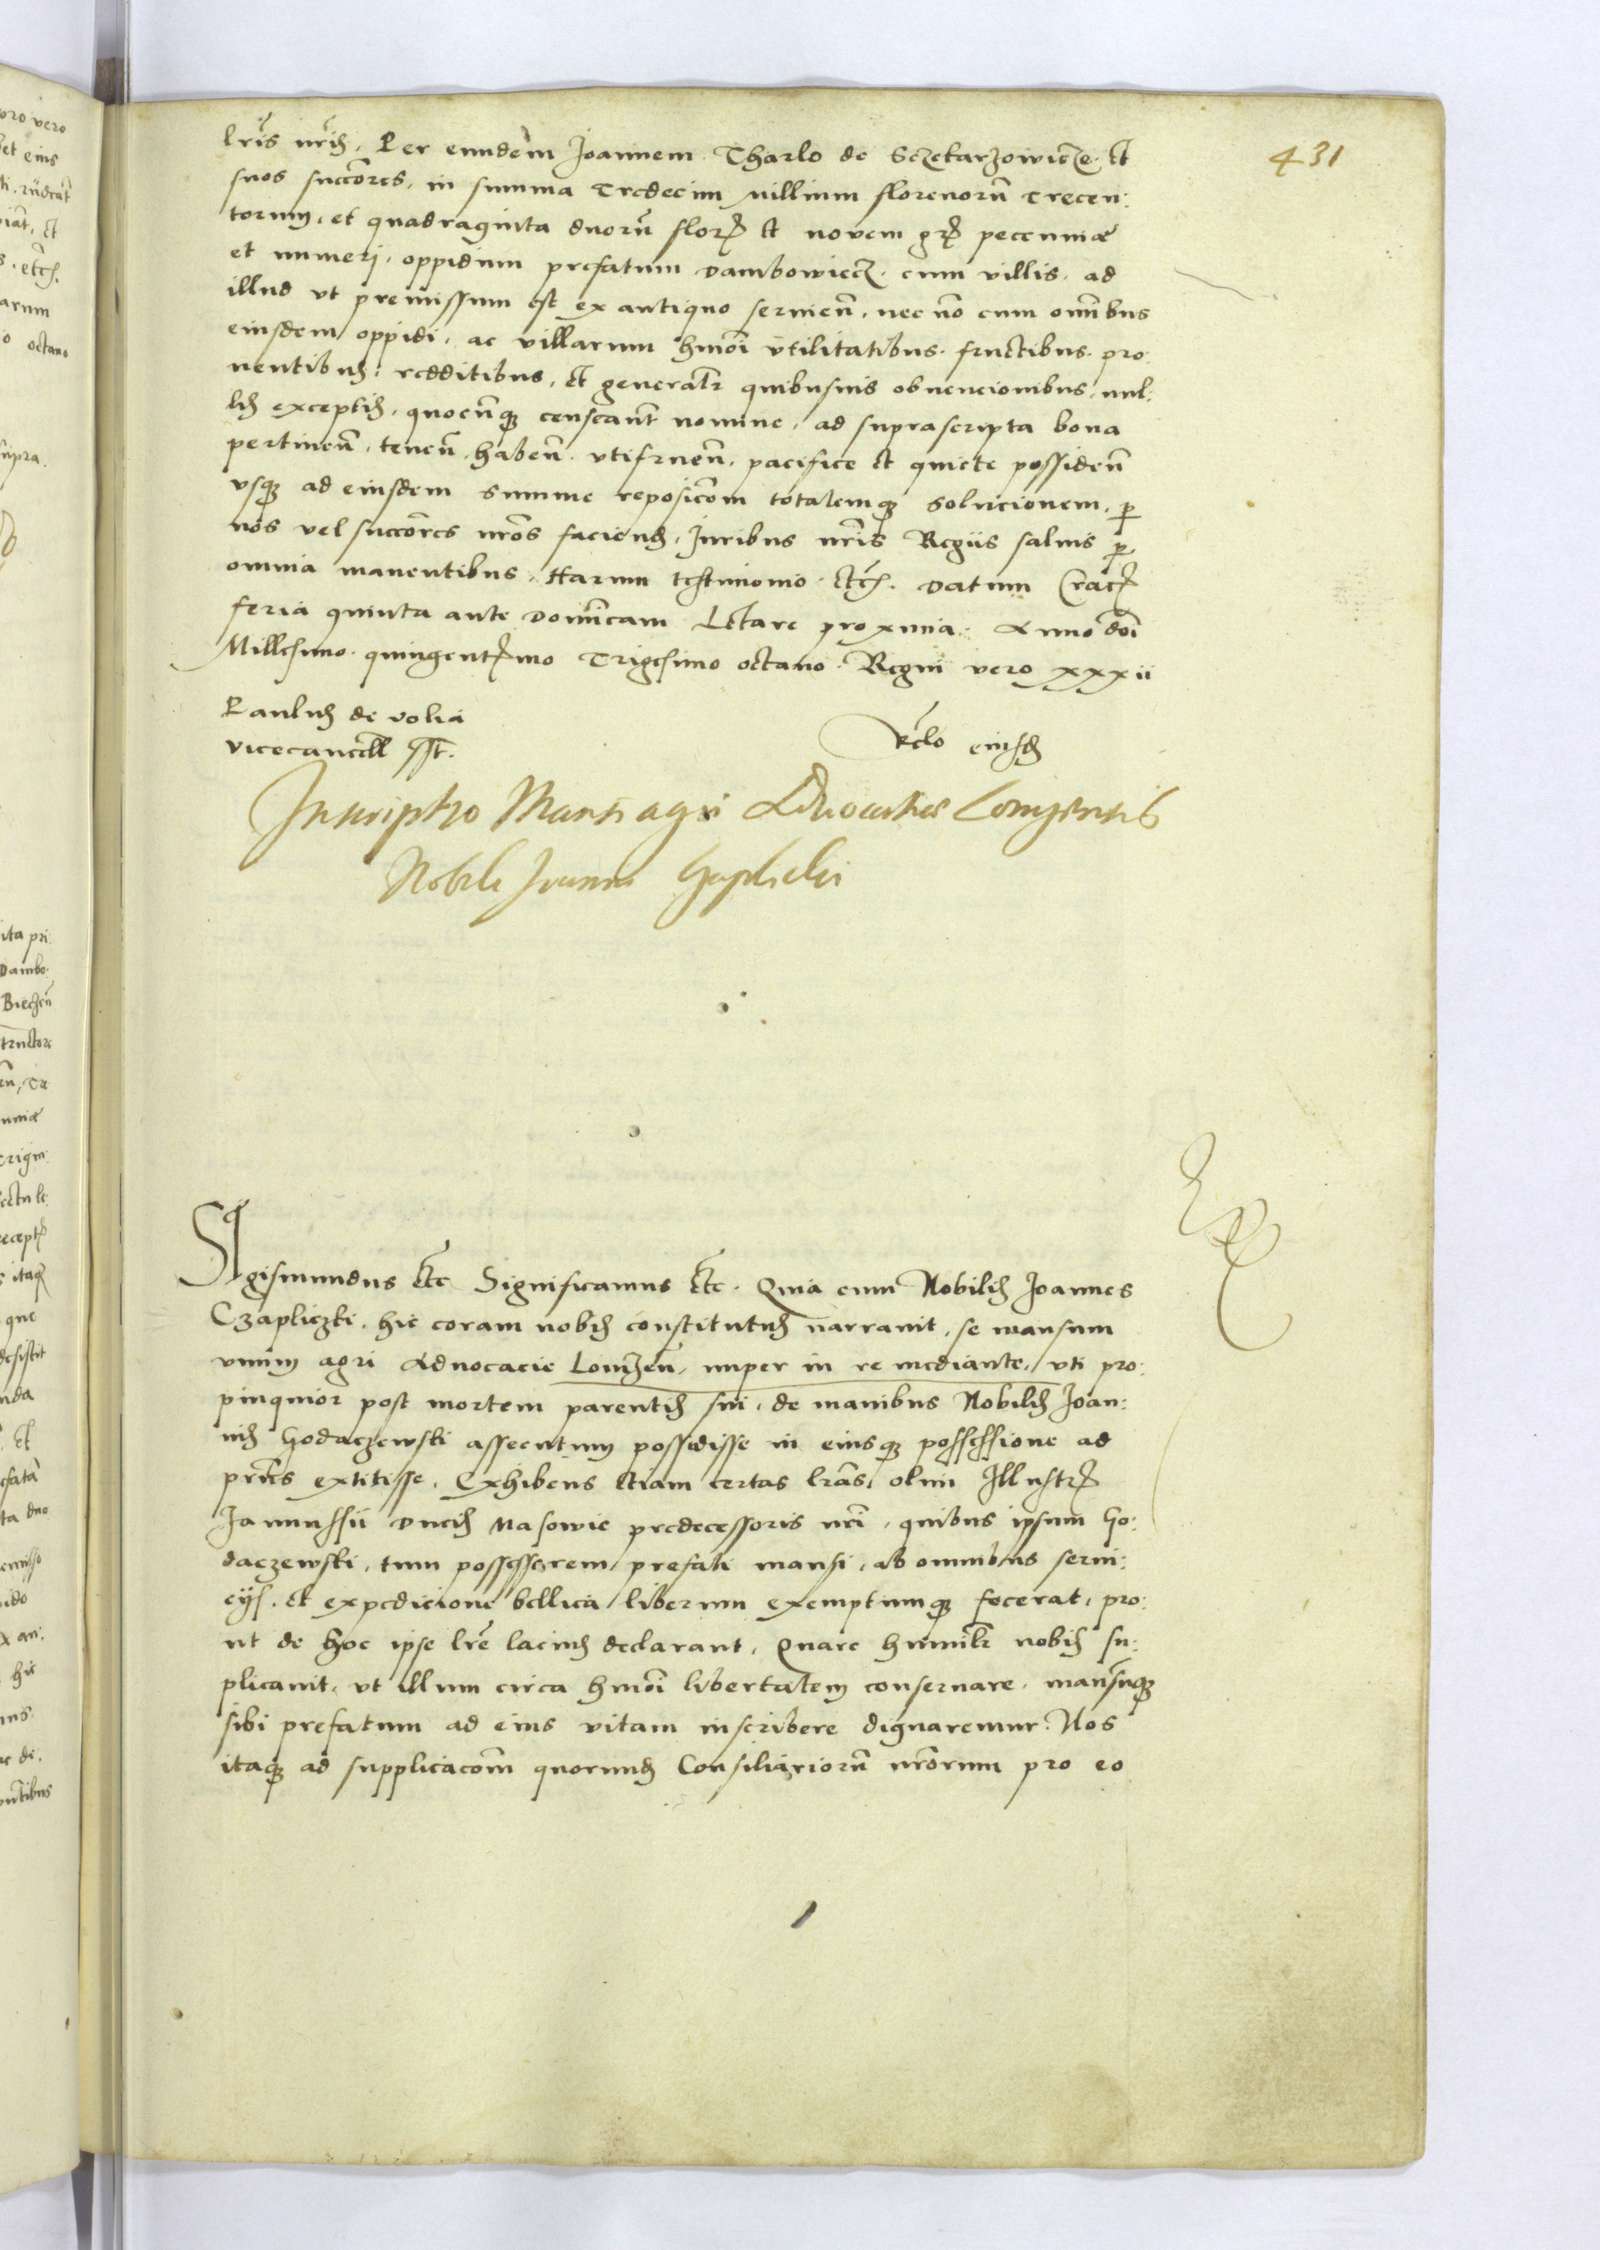 431
lr̃is nr̃is. Per eundem Joannem Tharlo de Sczekarzowicze. et
suos succores, in summa Tredecim millium florenorũ Trecen:
torum, et quadraginta duorũ flor et novem gr pecuniæ
et numeri, oppidum prefatum Dambowiecz. cum villis. ad
illud ut premissum est ex antiquo servien̄. nec nõ cum omĩbus
eiusdem oppidi, ac villarum hmõi utilitatibus. fructibus. pro:
ventibus. redditibus, et generalr quibusvis obvencionibus, nul:
lis exceptis, quocũq censeant̃ nomine, ad suprascripta bona
pertinen̄. tenen̄. haben̄. utifruen̄. pacifice et quiete possiden̄
usq ad eiusdem summe reposicõm totalemq Solucionem. p
nos vel succõres nrõs faciend. Juribus nr̃is Regiis salvis p
omnia manentibus. Harum testimonio etc. Datum Crac
feria quinta ante Domĩcam Letare proxima. Anno dõi
Millesimo. quingentmo Trigesimo octavo. Regni vero xxxii
Paulus de volia
vicecancell sst.
Rẽlo eiusd
Inscriptio Mansi agri Advocatiae Lomzensis
Nobili Joanni
Sigismundus etc Significamus etc. Quia cum Nobilis Joannes
Czapliczki. hic coram nobis constitutus narravit, se mansum
unum agri Advocacie Lomzen̄, nuper in re mediante, uti pro:
pinquior post mortem parentis sui, de manibus Nobilis Joan:
nis Godaczewski assecutum possedisse in eiusq possessione ad
prñs extitisse. Exhibens etiam certas lrãs, olim Illustr
Januussii Ducis Masowie predecessoris nrĩ, quibus ipsum Go:
daczewski, tum possessorem, prefati mansi, ab omnibus servi:
cijs. et expedicione bellica liberum exemptumq fecerat, pro:
ut de hoc ipse lrẽ lacius declarant, Quare humilr nobis su:
plicavit, ut illum circa hmõi libertatem conservare. mansũq
sibi prefatum ad eius vitam inscribere dignaremur. Nos
itaq ad supplicacõm quorund Consiliariorũ nrõrum pro eo